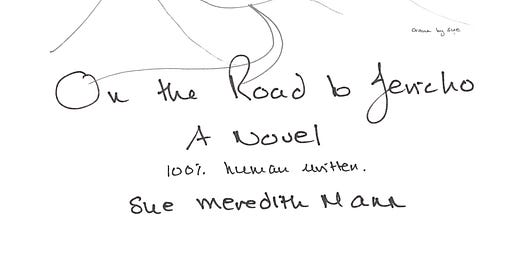 Drawn by Sue
On the Road to Jericho
A Novel
100% human written.
Sue Meredith Mann